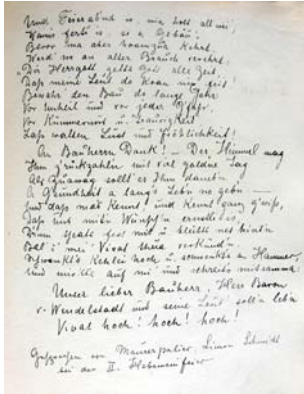 Und Feierabend is, mia hält all mei,
Wenns ferti is, so a Gebäu!
Bevor ma aber hoamzua kehrt
Werd no an alter Brauch verehrt:
"Da Herrgott gebs Gott alle Zeit,
Daß meine Leut do koan
Bewahr den Bau de lange Jahr
Vor Unheil und vor jeder G'fahr
Vor Kummernis u. Traurigkeit
Laß walten Lust und Fröhlichkeit!
An Bauherrn Dank! – Der Himmel mag
Ihm z'ruckzahln mit viel goldne Tag
Als sollt er Ihm
A Gsundheit a langs Lebn no gebn –
Und daß mas kennt und kennt ganz g'wiß,
Daß uns mit'n Wünsch'n ernst is,
Drum steht fest mit u. bleibt net hint'n
Bal i mei' Vivat thua verkünd'n
Kehln hoch u. an Hammer,
Und auf mi' und schreits mitsamma:
Unser lieber Bauherr, Herr Baron
v. Wendelstadt und seine Leut' soll'n leb'n
Vivat hoch! hoch! hoch!
von Maurerpalier Simon Schmidt
bei der II. Hebaweinfeier